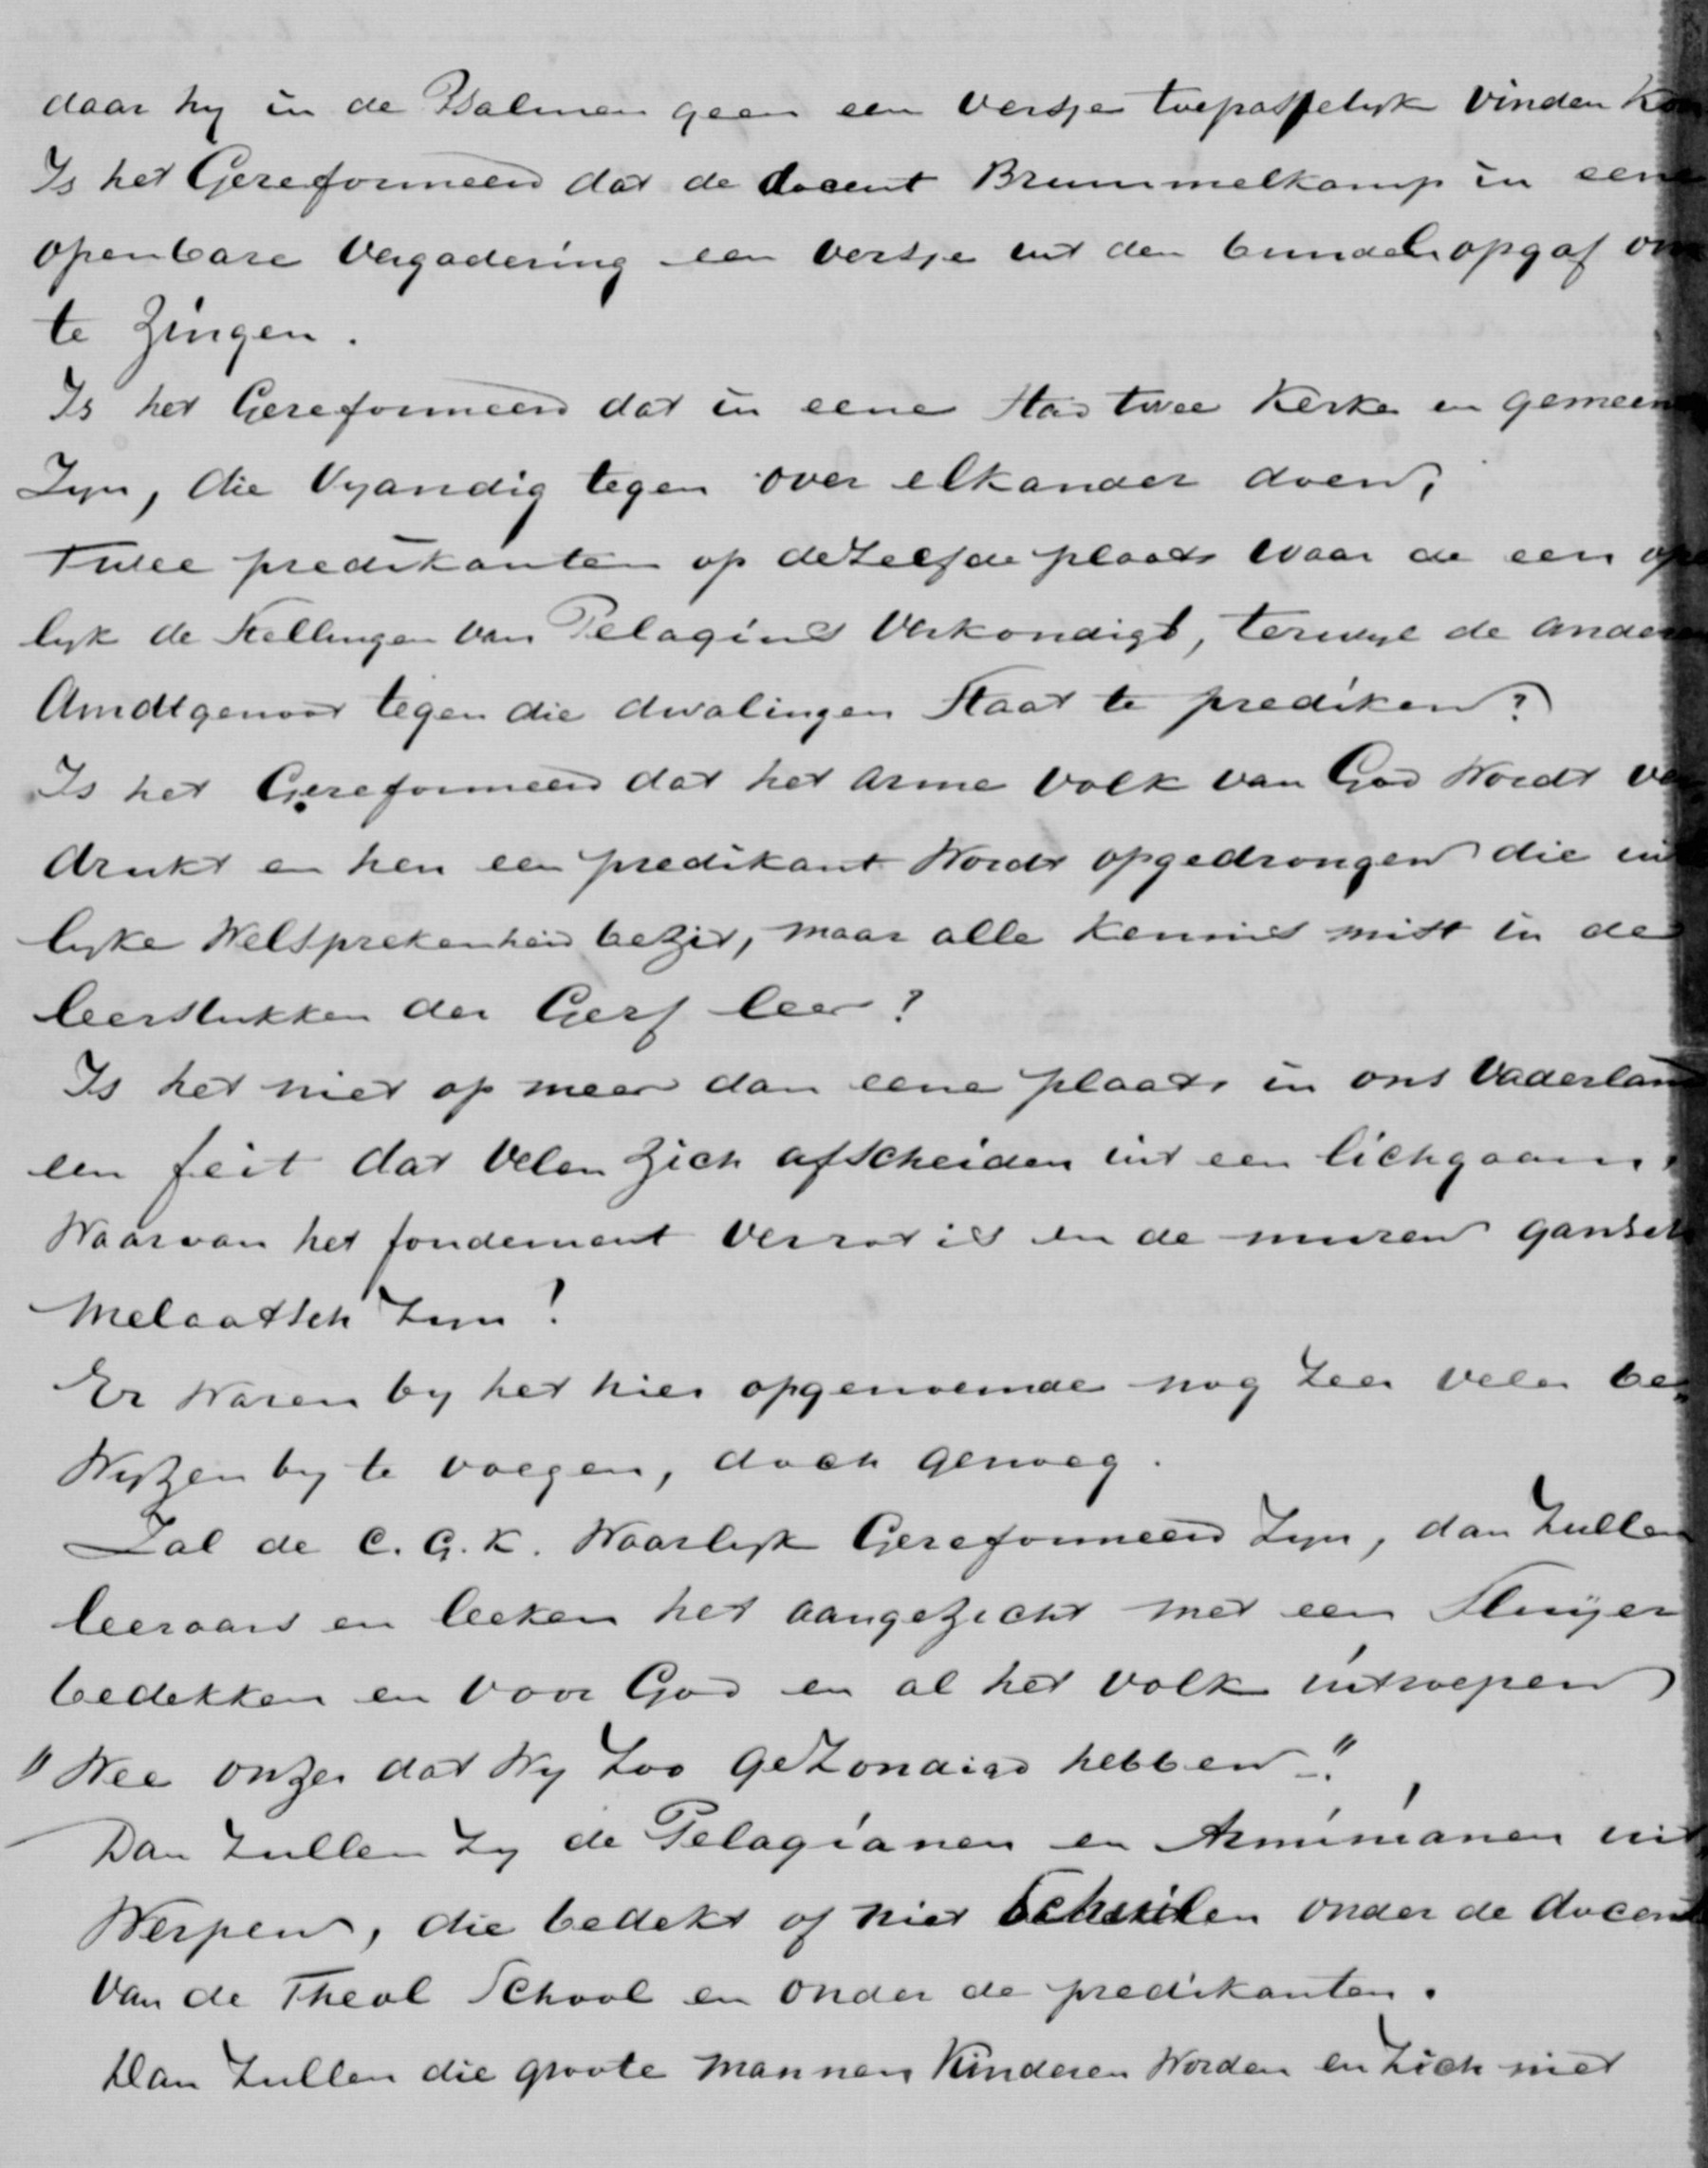 daar hy in de Psalmen geen een versje toepasselyk vinden kon
Is het Gereformeerd dat de docent Brummelkamp in eene
openbare Vergadering een versje uit den bundel opgaf om
te zingen.
Is het Gereformeerd dat in eene Stad twee Kerke en gemeen
Zyn, die Vyandig tegen over elkander doen,
Twee predikanten op dezelfde plaats waar de een op
lyk de Stellingen van Pelagius Verkondigt, terwyl de andere
Amdtgenoot tegen die dwalingen Staat te prediken?
Is het Gereformeerd dat het arme volk van God Wordt ver
drukt en hen een predikant Wordt opgedrongen die uit
lyke Welsprekenheid bezit, maar alle Kennis mist in de
leerstukken der Gerf leer?
Is het niet op meer dan eene plaats in ons Vaderland
een feit dat Velen Zich afscheiden uit een lichgaam,
Waarvan het fondement Verrot is en de muren gansch
Melaatsch Zyn!
Er Waren by het hier opgenoemde nog Zeer vele be„
Wyzen by te voegen, doch genoeg.
Zal de C. G. K. Waarlyk Gereformeerd Zyn, dan Zullen
leeraars en leeken het aangezicht met een Sluyer
bedekken en voor God en al het volk uitroepen
"Wee onzer dat Wy Zoo gezondigd hebben."
Dan Zullen Zy de Pelagianen en Arminianen uit„
Werpen, die bedekt of niet Schuilen onder de docent
Van de Theol School en onder de predikanten.
Dan Zullen die groote mannen Kinderen Worden en Zich niet